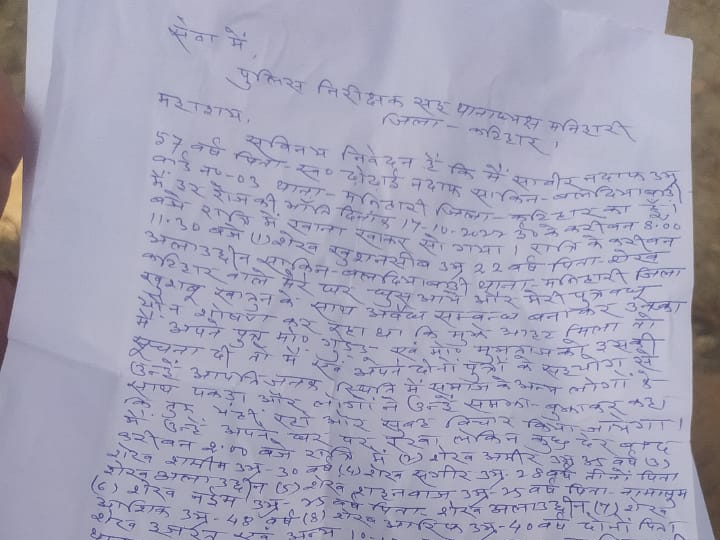 सेवा में,
पुलिस निरीक्षक सह थानाध्यक्ष मनिहारी
जिला - कटिहार ।
महाशय,
सविनय निवेदन है कि मैं साबीर नदाफ उम्र
57 वर्ष पिता - स्व० नदाफ साकिन - बलदियाबाड़ी
वार्ड नं०-03 थाना - मनिहारी जिला - कटिहार का हूँ ।
मैं हर रोज की भाँति दिनांक 17-10-2022 ई० के करीबन 8:00
बजे रात्रि में खाना खाकर सो गया । रात्रि के करीबन
11.30 बजे (1) शेख खुशनसीब उम्र 22 वर्ष पिता - शेख
अलाउद्दीन साकिन - बलदियाबाड़ी थाना - मनिहारी जिला
कटिहार वाले मेरे घर घुस आये और मेरी पुत्रवधू
खुशबू खातुन के साथ अवैध सम्बन्ध बनाकर उसका
यौन शोषण कर रहा था कि मुझे आहट मिला तो
मैं अपने पुत्र मो० गुड्डु एवं मो० को इसकी
सूचना दी तो मैं एवं अपने दोनों पुत्रों के सहयोग से
उन्हें आपत्तिजनक स्थिति में समाज के अन्य लोगों के
साथ पकड़ा और लोगों ने उन्हें समझा बुझाकर कहा
कि तुम यहीं रहो और सुबह विचार किया जायेगा ।
मैं उन्हें अपने घर पर रखा लेकिन कुछ देर बाद
करीबन 2:00 बजे रात्रि में (2) शेख अमीर उम्र 35 वर्ष (3)
शेख शमीम उम्र - 30 वर्ष (4) शेख सगीर उम्र - 28 वर्ष तीनों पिता
शेख अलाउद्दीन (5) शेख शाहनवाज उम्र - 25 वर्ष पिता - नामालूम
(6) शेख नईम उम्र - 25 वर्ष पिता - शेख अलाउद्दीन (7) शेख
आशिक उम्र - 48 वर्ष (8) शेख आरिफ उम्र - 40 वर्ष दोनों पिता
शेख एवं अन्य 10-